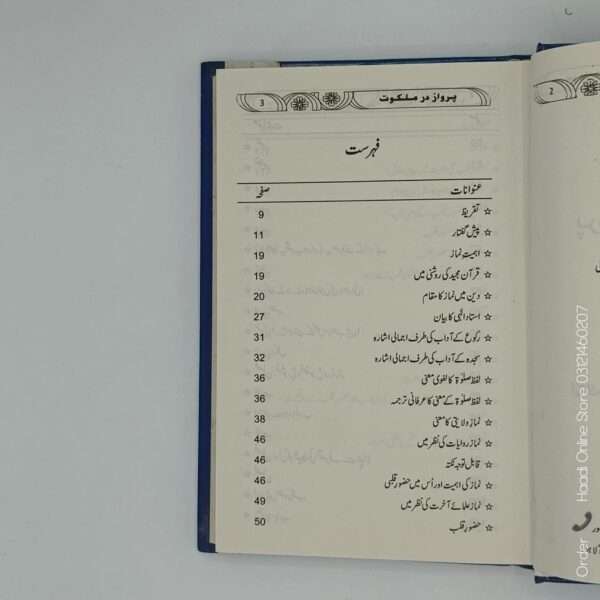 3 پرواز در ملکوت
2
فہرست
عنوانات صفحہ
☆ تقریظ 9
☆ پیش گفتار 11
☆ اہمیت نماز 19
☆ قرآن مجید کی روشنی میں 19
☆ دین میں نماز کا مقام 20
☆ استاد الٰہی کا بیان 27
☆ رکوع کے آداب کی طرف اجمالی اشارہ 31
☆ سجدہ کے آداب کی طرف اجمالی اشارہ 32
☆ لفظ صلوٰۃ کا لغوی معنی 36
☆ لفظ صلوٰۃ کے معنی کا عرفانی ترجمہ 36
☆ نماز ولایتی کا معنی 38
☆ نماز روایات کی نظر میں 46
☆ قابل توجہ نکتہ 46
☆ نماز کی اہمیت اور اُس میں حضور قلبی 46
☆ نماز علمائے آخرت کی نظر میں 49
☆ حضور قلب 50
Order Haadi Online Store 03121460207